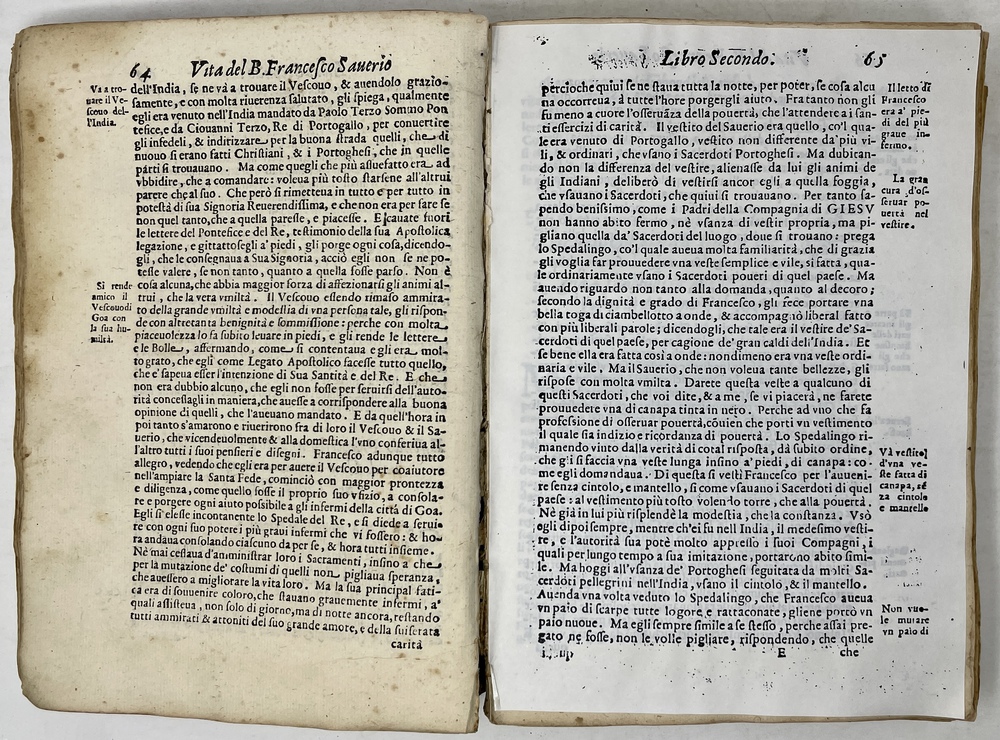 64 Vita del B. Francesco Sauerio
Va a tro-
uare il Ve-
scouo del-
l'India.
dell'India, se ne và a trouare il Vescouo, & auendolo grazio-
samente, e con molta riuerenza salutato, gli spiega, qualmente
egli era venuto nell'India mandato da Paolo Terzo Sommo Pon
tefice, e da Ciouanni Terzo, Re di Portogallo, per conuertire
gli infedeli, & indirizzare per la buona strada quelli, che di
nuouo si erano fatti Christiani, & i Portoghesi, che in quelle
parti si trouauano. Ma come quegli che più assuefatto era ad
vbbidire, che a comandare: voleua più tosto starsene all'altrui
parere che al suo. Che però si rimetteua in tutto e per tutto in
potestà di sua Signoria Reuerendissima, e che non era per fare se
non quel tanto, che a quella paresse, e piacesse. E cauate fuori
le lettere del Pontefice e del Re, testimonio della sua Apostolica
legazione, e gittatosegli a' piedi, gli porge ogni cosa, dicendo-
gli, che le consegnaua a Sua Signoria, acciò egli non se ne po-
tesse valere, se non tanto, quanto a quella fosse parso. Non è
cosa alcuna, che abbia maggior forza di affezionarsi gli animi al-
trui, che la vera vmiltà. Il Vescouo essendo rimaso ammira-
to della grande vmiltà e modestia di vna persona tale, gli rispon-
de con altretanta benignità e sommissione: perche con molta
piaceuolezza lo fa subito leuare in piedi, e gli rende le lettere
e le Bolle, affermando, come si contentaua egli era mol-
to grato, che egli come Legato Apostolico facesse tutto quello,
che e' sapeua esser l'intenzione di Sua Santità e del Re. E che
non era dubbio alcuno, che egli non fosse per seruirsi dell'auto-
rità concessagli in maniera, che auesse a corrispondere alla buona
opinione di quelli, che l'aueuano mandato. E da quell'hora in
poi tanto s'amarono e riuerirono fra di loro il Vescouo & il Sa-
uerio, che vicendeuolmente & alla domestica l'vno conferiua al-
l'altro tutti i suoi pensieri e disegni. Francesco adunque tutto
allegro, vedendo che egli era per auere il Vescouo per coaiutore
nell'ampiare la Santa Fede, cominciò con maggior prontezza
e diligenza, come quello fosse il proprio suo vfizio, a consola-
re e porgere ogni aiuto possibile a gli infermi della città di Goa.
Egli si elesse incontanente lo Spedale del Re, e si diede a serui-
re con ogni suo potere i più graui infermi che vi fossero: & ho-
ra andaua consolando ciascuno da per se, & hora tutti insieme.
Nè mai cessaua d'amministrar loro i Sacramenti, insino a che
per la mutazione de' costumi di quelli non pigliaua speranza,
che auessero a migliorare la vita loro. Ma la sua principal fati-
ca era di souuenire coloro, che stauano grauemente infermi, a'
quali assisteua, non solo di giorno, ma di notte ancora, restando
tutti ammirati & attoniti del suo grande amore, e della suiscerata
carità
Si rende
amico il
Vescouo di
Goa con
la sua hu-
miltà.
Libro Secondo. 65
percioche quiui se ne staua tutta la notte, per poter, se cosa alcu
na occorreua, à tutte l'hore porgergli aiuto. Fra tanto non gli
fu meno a cuore l'osseruãza della pouertà, che l'attendere a i san-
ti essercizi di carità. Il vestito del Sauerio era quello, co'l qua-
le era venuto di Portogallo, vestito non differente da' più vi-
li, & ordinari, che vsano i Sacerdoti Portoghesi. Ma dubitan-
do non la differenza del vestire, alienasse da lui gli animi de
gli Indiani, deliberò di vestirsi ancor egli a quella foggia,
che vsauano i Sacerdoti, che quiui si trouauano. Per tanto sa-
pendo benissimo, come i Padri della Compagnia di GIESV
non hanno abito fermo, nè vsanza di vestir propria, ma pi-
gliano quella da' Sacerdoti del luogo, doue si trouano: prega
lo Spedalingo, co'l quale aueua molta familiarità, che di grazia
gli voglia far prouuedere vna veste semplice e vile, si fatta, qua-
le ordinariamente vsano i Sacerdoti poueri di quel paese. Ma
auendo riguardo non tanto alla domanda, quanto al decoro;
secondo la dignità e grado di Francesco, gli fece portare vna
bella toga di ciambellotto a onde, & accompagnò liberal fatto
con più liberali parole; dicendogli, che tale era il vestire de' Sa-
cerdoti di quel paese, per cagione de' gran caldi dell'India. Et
se bene ella era fatta così a onde: nondimeno era vna veste ordi-
naria e vile. Ma il Sauerio, che non voleua tante bellezze, gli
rispose con molta vmiltà. Darete questa veste a qualcuno di
questi Sacerdoti, che voi dite, & a me, se vi piacerà, ne farete
prouuedere vna di canapa tinta in nero. Perche ad vno che fa
professione di osseruar pouertà, cõuien che porti vn vestimento
il quale sia indizio e ricordanza di pouertà. Lo Spedalingo ri-
manendo vinto dalla verità di cotal risposta, dà subito ordine,
che gli si faccia vna veste lunga insino a' piedi, di canapa: co-
me egli domandaua. Di questa si vestì Francesco per l'auueni-
re senza cintolo, e mantello, si come vsauano i Sacerdoti di quel
paese: al vestimento più tosto volendo torre, che alla pouertà.
Nè già in lui più risplendè la modestia, che la constanza. Vsò
egli dipoi sempre, mentre ch'ei fu nell India, il medesimo vesti-
re, e l'autorità sua potè molto appresso i suoi Compagni, i
quali per lungo tempo a sua imitazione, portarono abito simi-
le. Ma hoggi all'vsanza de' Portoghesi seguitata da molti Sa-
cerdoti pellegrini nell'India, vsano il cintolo, & il mantello.
Auenda vna volta veduto lo Spedalingo, che Francesco aueua
vn paio di scarpe tutte logore e rattaconate, gliene portò vn
paio nuouo. Ma egli sempre simile a se stesso, perche assai pre-
gato ne fosse, non le volle pigliare, rispondendo, che quelle
E che
Il letto di
Francesco
era a' pie-
di del più
graue in-
fermo.
La gran
cura d'os-
seruar po-
uertà nel
vestire.
Và vestito
d'vna ve-
ste fatta di
canapa, sẽ
za cintolo
e mantello
Non vuo-
le mutare
vn paio di